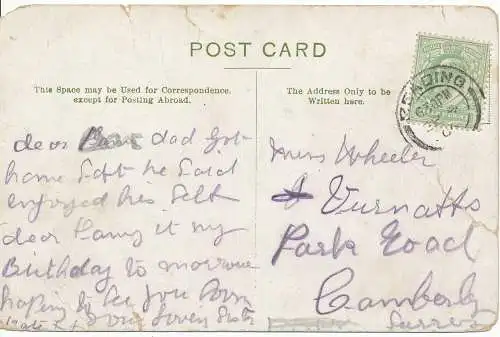 POST CARD
This Space may be Used for Correspondence.
except for Posting Abroad.
The Address Only to be
Written here.
READING
dear dad got
home Saft he said
enjoyed his self
dear it my
Birthday to morrow
hoping to see you soon
your loven sister
Miss Wheeler
Vurnatts
Park Road
Camberly
Surrey